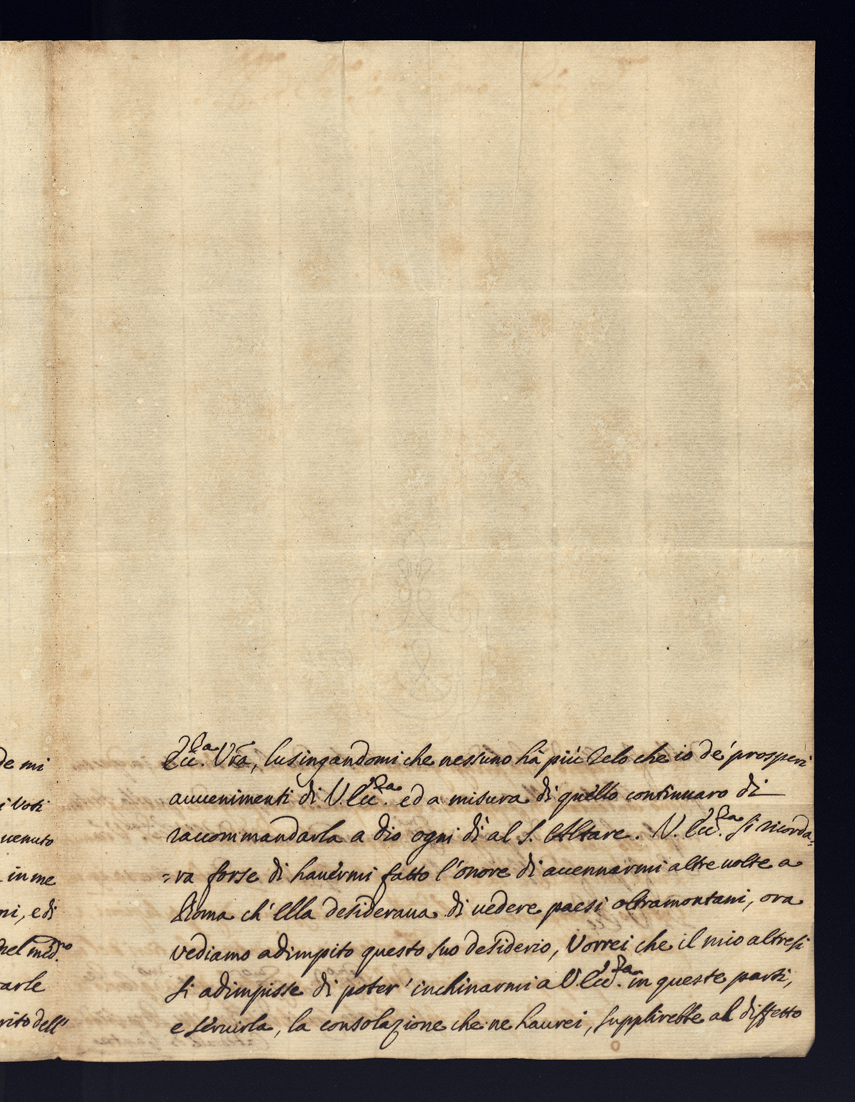 de mi
i Voti
uenuto
in me
ni, e di
nel med.mo
arle
rito dell'
Ecc.za Vra, lusingandomi che nessuno hà più Zelo che io de' prosperi
auuenimenti di V. Ecc.za ed a misura di quello continuaro di
raccommandarla a dio ogni dì al S. Altare. V. Ecc.za si ricorda=
=va forse di hauermi fatto l'onore di accennarmi altre uolte a
Roma ch'Ella desideraua di uedere paesi oltramontani, ora
vediamo adimpito questo suo desiderio, Vorrei che il mio altresi
si adimpisse di poter' inchinarmi a V. Ecc.za in queste parti,
e seruirla, la consolazione che ne haurei, supplirebbe al diffetto